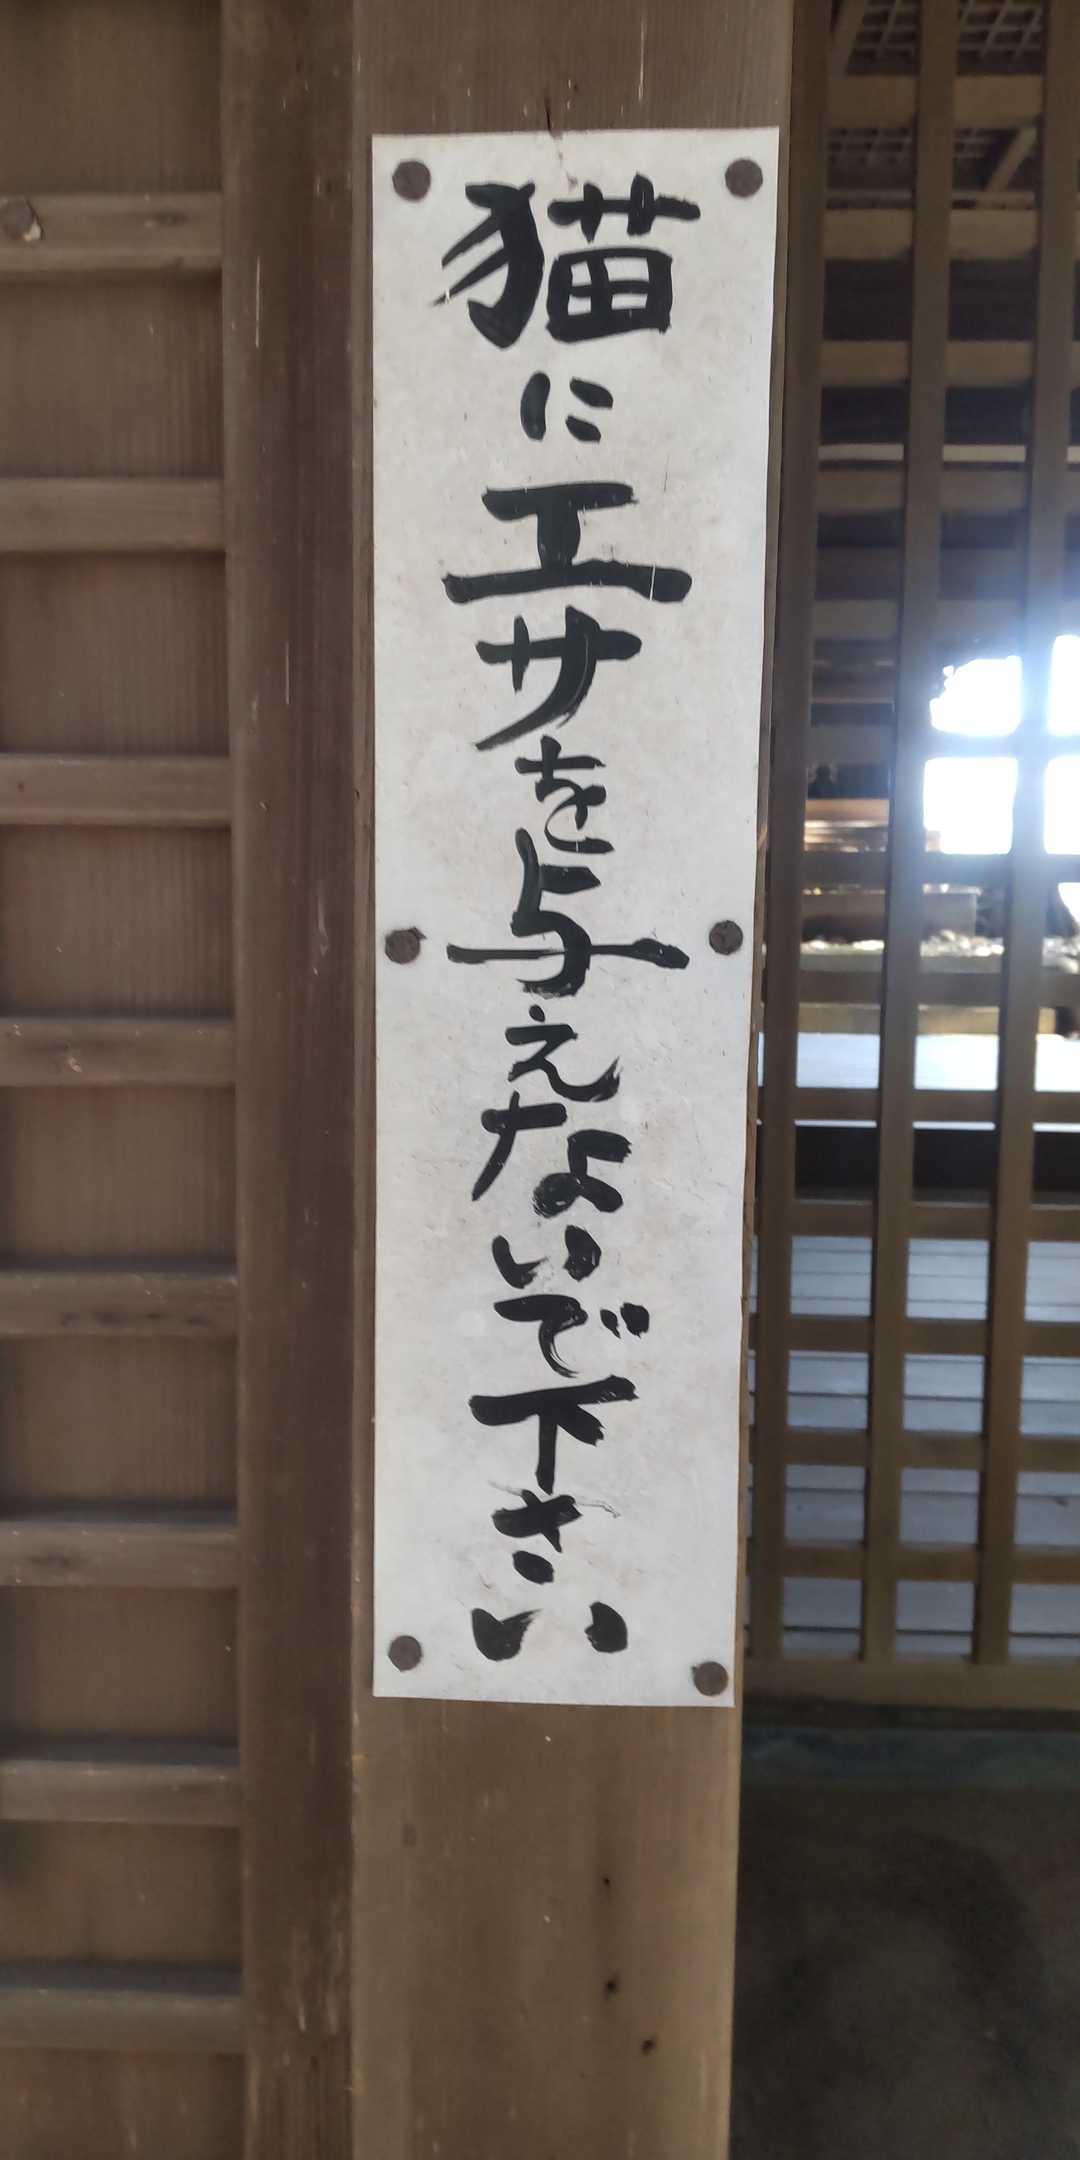 猫にエサを与えないで下さい